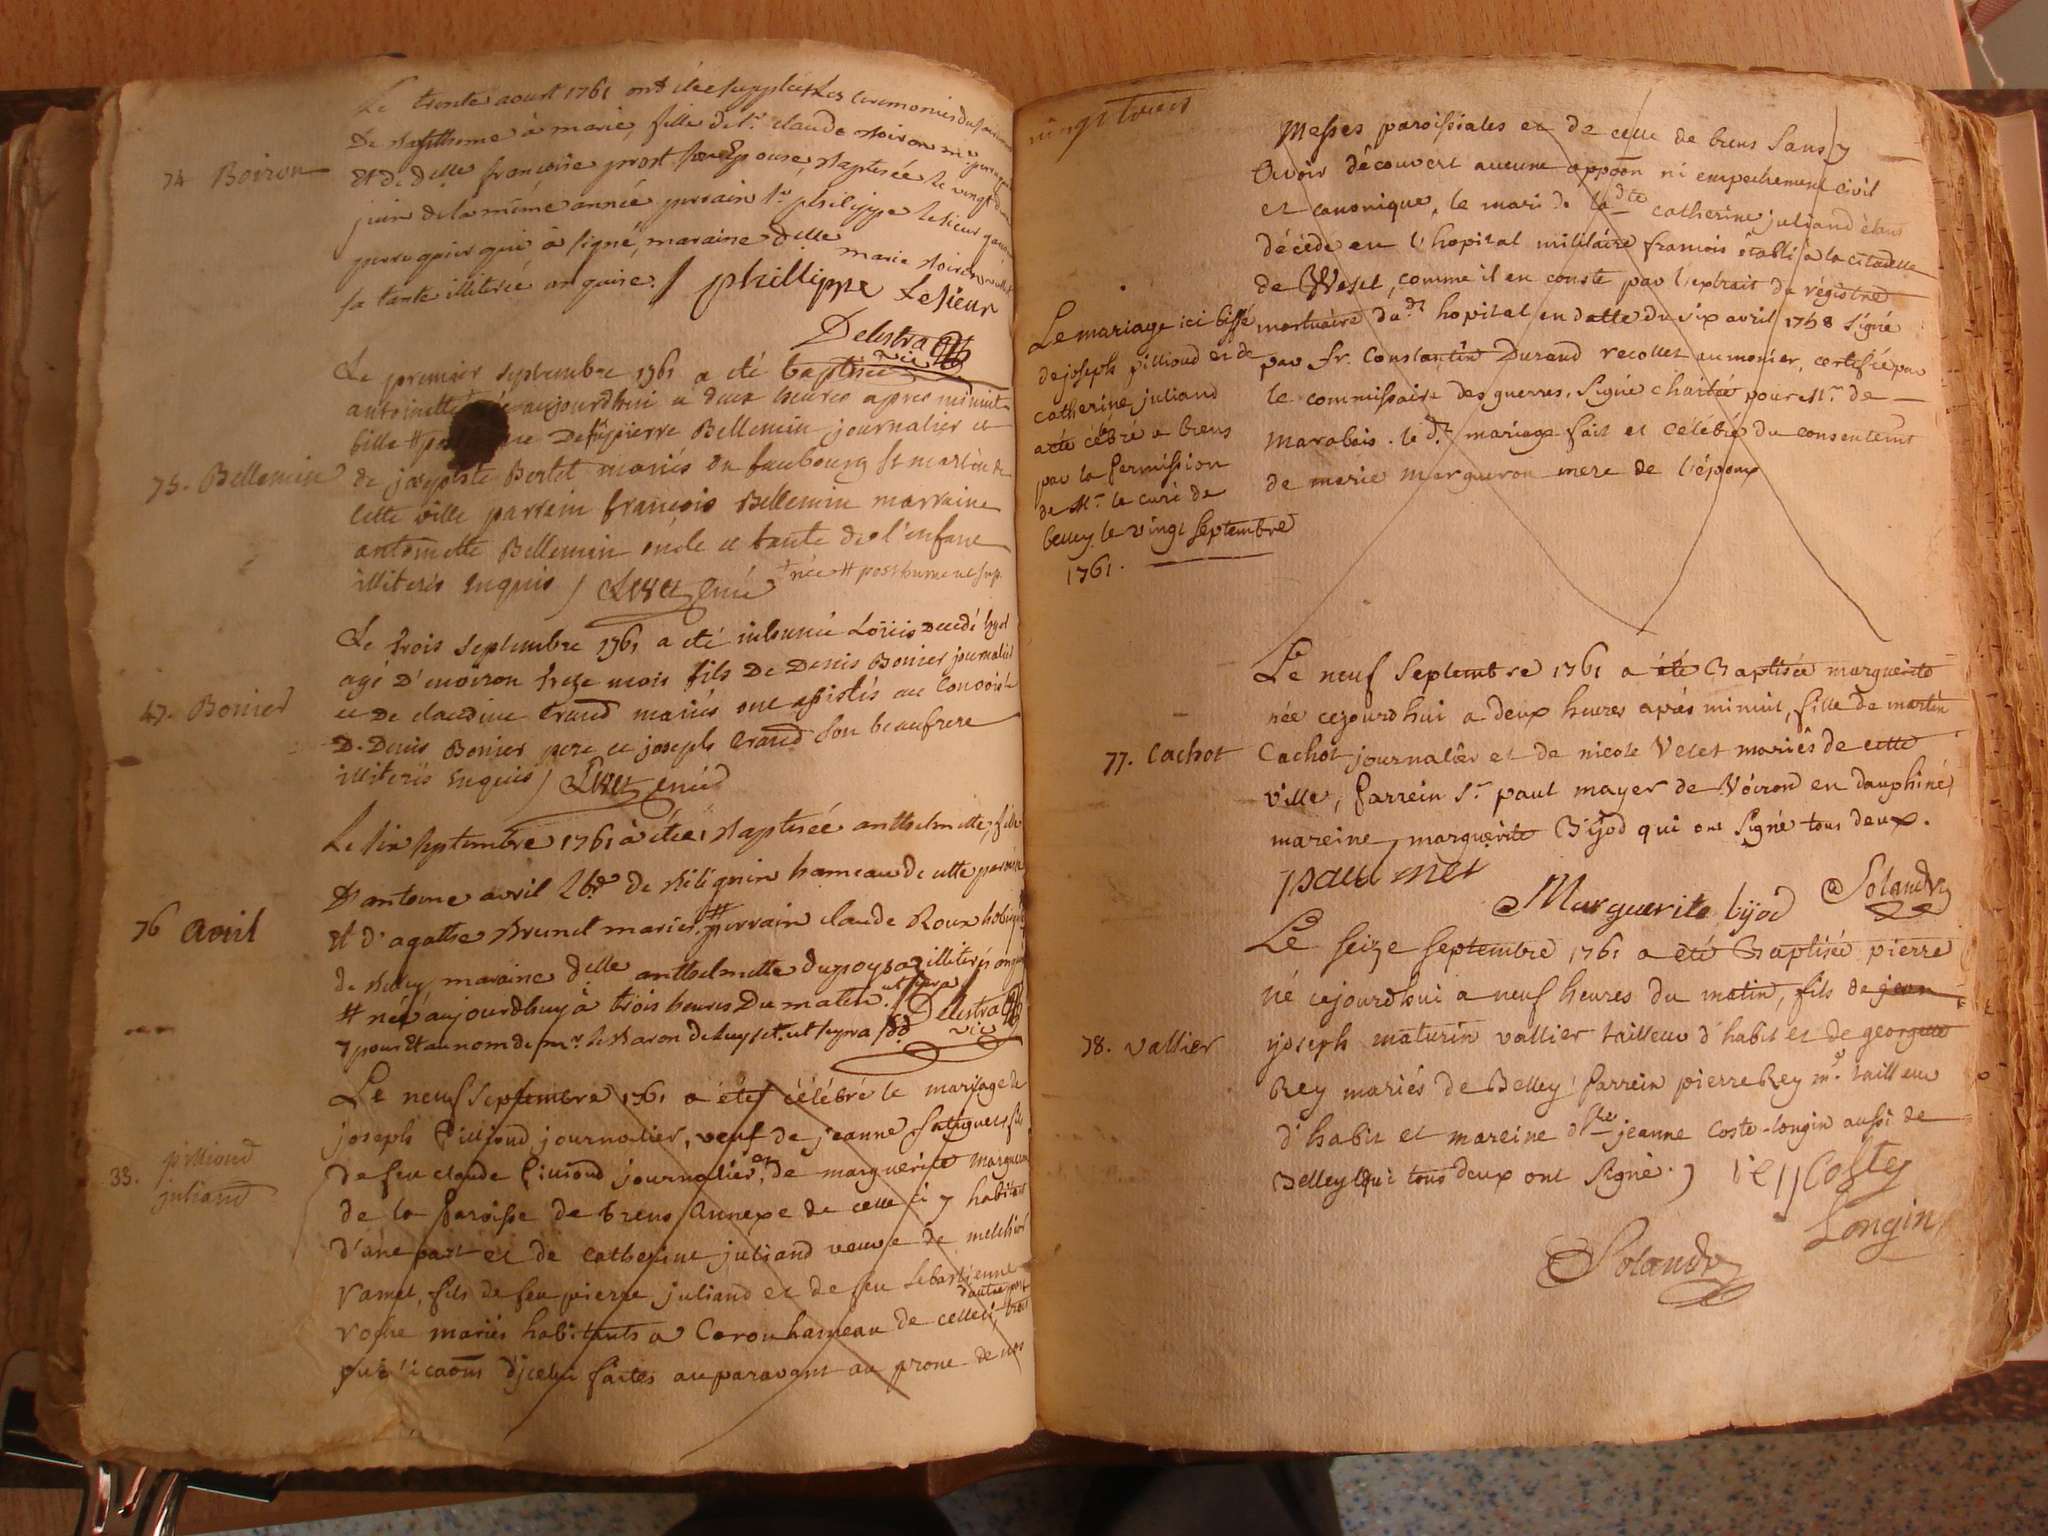 Le trente aoust 1761 ont étée supplées Les ceremonies du
De Bapthsme à marie, fille de Sr. claude Boiron me.
74 Boiron
Et de delle françoise prost son Epouse, Baptisée le vingt
juin de la même année parrain Sr. philippe lesieur
perruquier qui à signé, maraine delle marie Boiron
sa tante illiterée enquise. / phillippe Lesieur
Delestra vic
Le premier septembre 1761 a eté baptisée
antoinette aujourdhui a deux heures apres minuit
fille # de pierre Bellemin journalier et
75. Bellemin
de jacqueste Bertet mariés du faubourg st martin de
cette ville parrein françois Bellemin marraine
antoinette Bellemin oncle et tante de l'enfant
illiterés enquis /
† née # posthume
Le trois septembre 1761 a eté inhumé Loüis decedé hyer
agé d'environ treze mois fils de Denis Bonier journalier
47. Bonier
et de claudine Craud mariés ont assistés au convoi
D. Denis Bonier pere et joseph Craud son beaufrere
illiterés enquis /
Le six septembre 1761 à étée Baptisée anthelmette, fille
D'antoine avril de Billignin hameau de cette paroisse
76 avril
Et d'agathe Brunet mariés # parrain claude Roux
de Belley maraine delle anthelmette dupoysa illiterés
# née aujourdhuy à trois heures du matin. ut supra / Delestra vic
7 pour Et au nom de mr. le Baron de
Le neuf septembre 1761 a étéf célébré le mariage de
joseph Pillioud journalier, veuf de jeanne fils
33. pillioud juliand
de feu claude Pillioud journalier, et de marguerite margueron
de la paroisse de brens annexe de celle ci y habitant
d'une part et de catherine juliand veuve de melchior
ramel, fils de feu pierre juliand et de feu sebastienne
d'autre part
roche mariés habitants a Coron hameau de celleci, trois
publicaoñs d'jcelui faites auparavant au prone de nos
vingt trois
Messes paroissiales et de celle de brens sans y
avoir découvert aucune oppoõn ni empechement civil
et canonique, le mari de ladte catherine juliand étant
décédé en l'hopital militaire francois établi à la citadelle
de Wesel, comme il en conste par l'extrait du régistre
mortuaire du dt hopital en datte du six avril 1758 signé
par fr. Constantin Durand recollet aumonier, certifié par
le commissaire des guerres, signé chartée pour Mr. de
Marabais. le dt mariage fait et célébré du consentemt
de marie margueron mere de l'époux
Le mariage ici biffé
de joseph pillioud et de
catherine juliand
a été célébré a brens
par la permission
de Mr. le curé de
belley le vingt septembre
1761.
Le neuf septembre 1761 a été Baptisée marguerite
née cejourdhui a deux heures aprés minuit, fille de martin
77. Cachot
Cachot journalier et de nicole Velet mariés de cette
ville, parrein Sr. paul mayer de Voiron en dauphiné,
mareine, marguerite Bijod qui ont signé tous deux.
paul mer
Marguerite bijod Solandry
Le seize septembre 1761 a eté Baptisée pierre
né cejourdhui a neuf heures du matin, fils de jean
78. Vallier
joseph maturin vallier tailleur d'habit et de georgette
Rey mariés de Belley, parrein pierre Rey me. tailleur
d'habit et mareine dlle jeanne coste-longin aussi de
Belley qui tous deux ont signé. /
Coste
Longin
Solandry